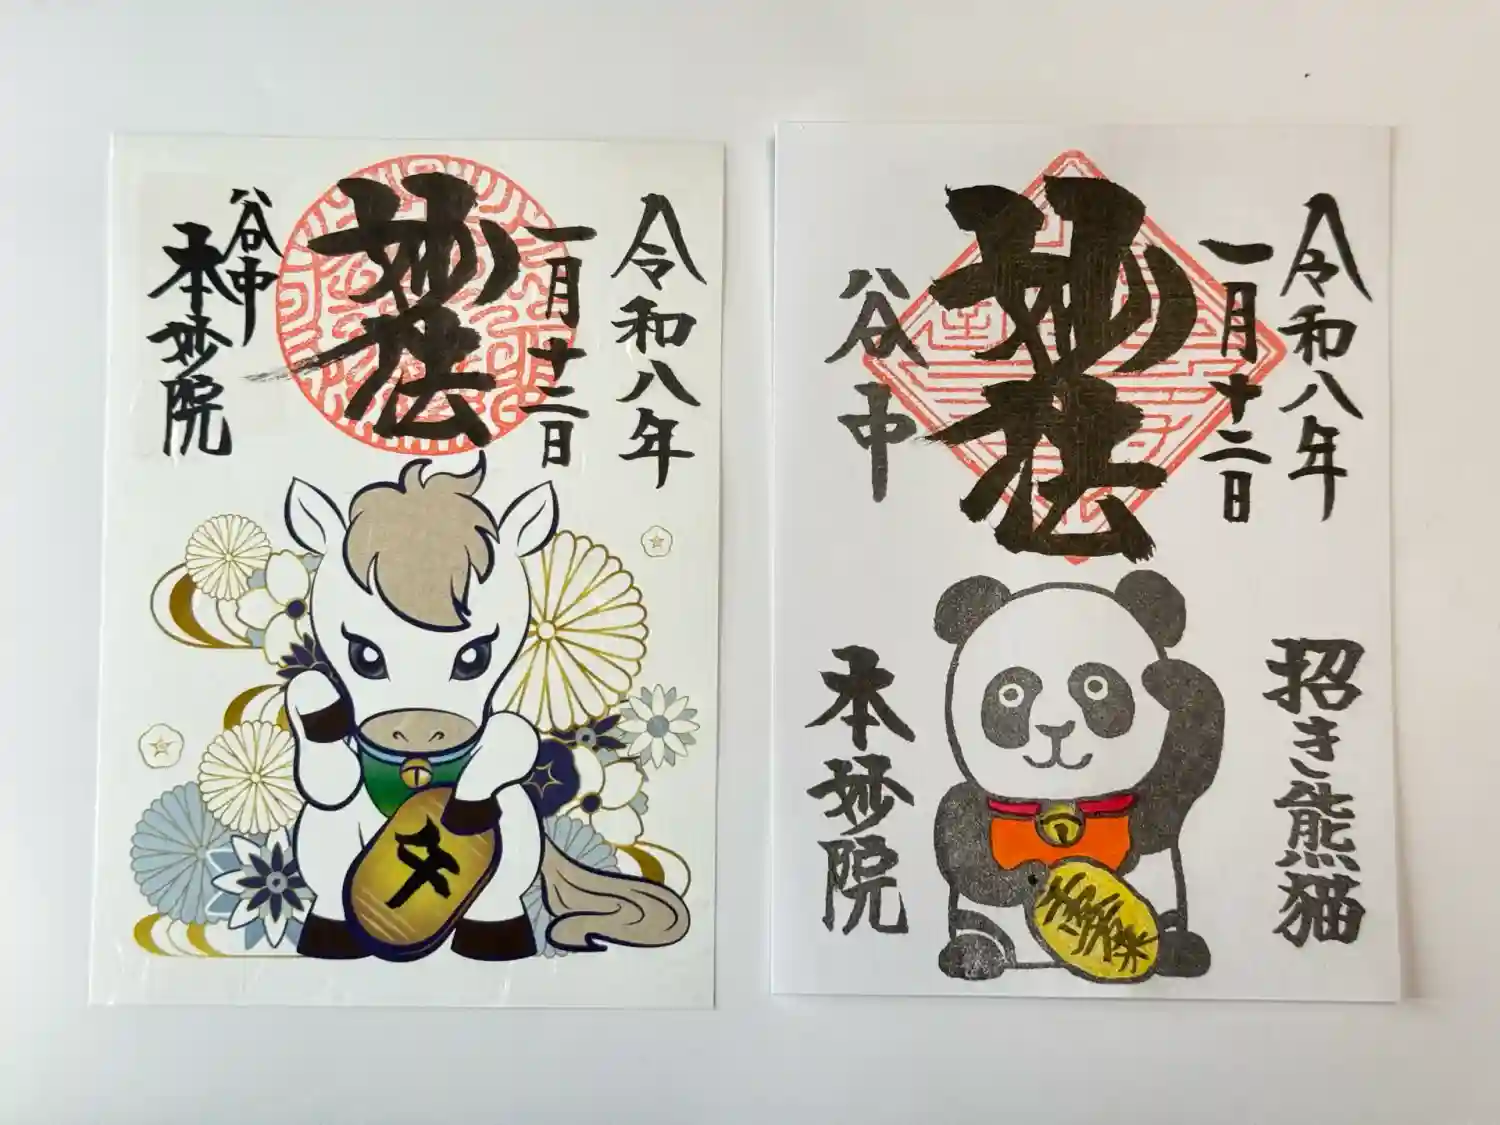 令和八年
一月十二日
妙法
谷中
本妙院
午
令和八年
一月十二日
妙法
谷中
本妙院
招き熊猫